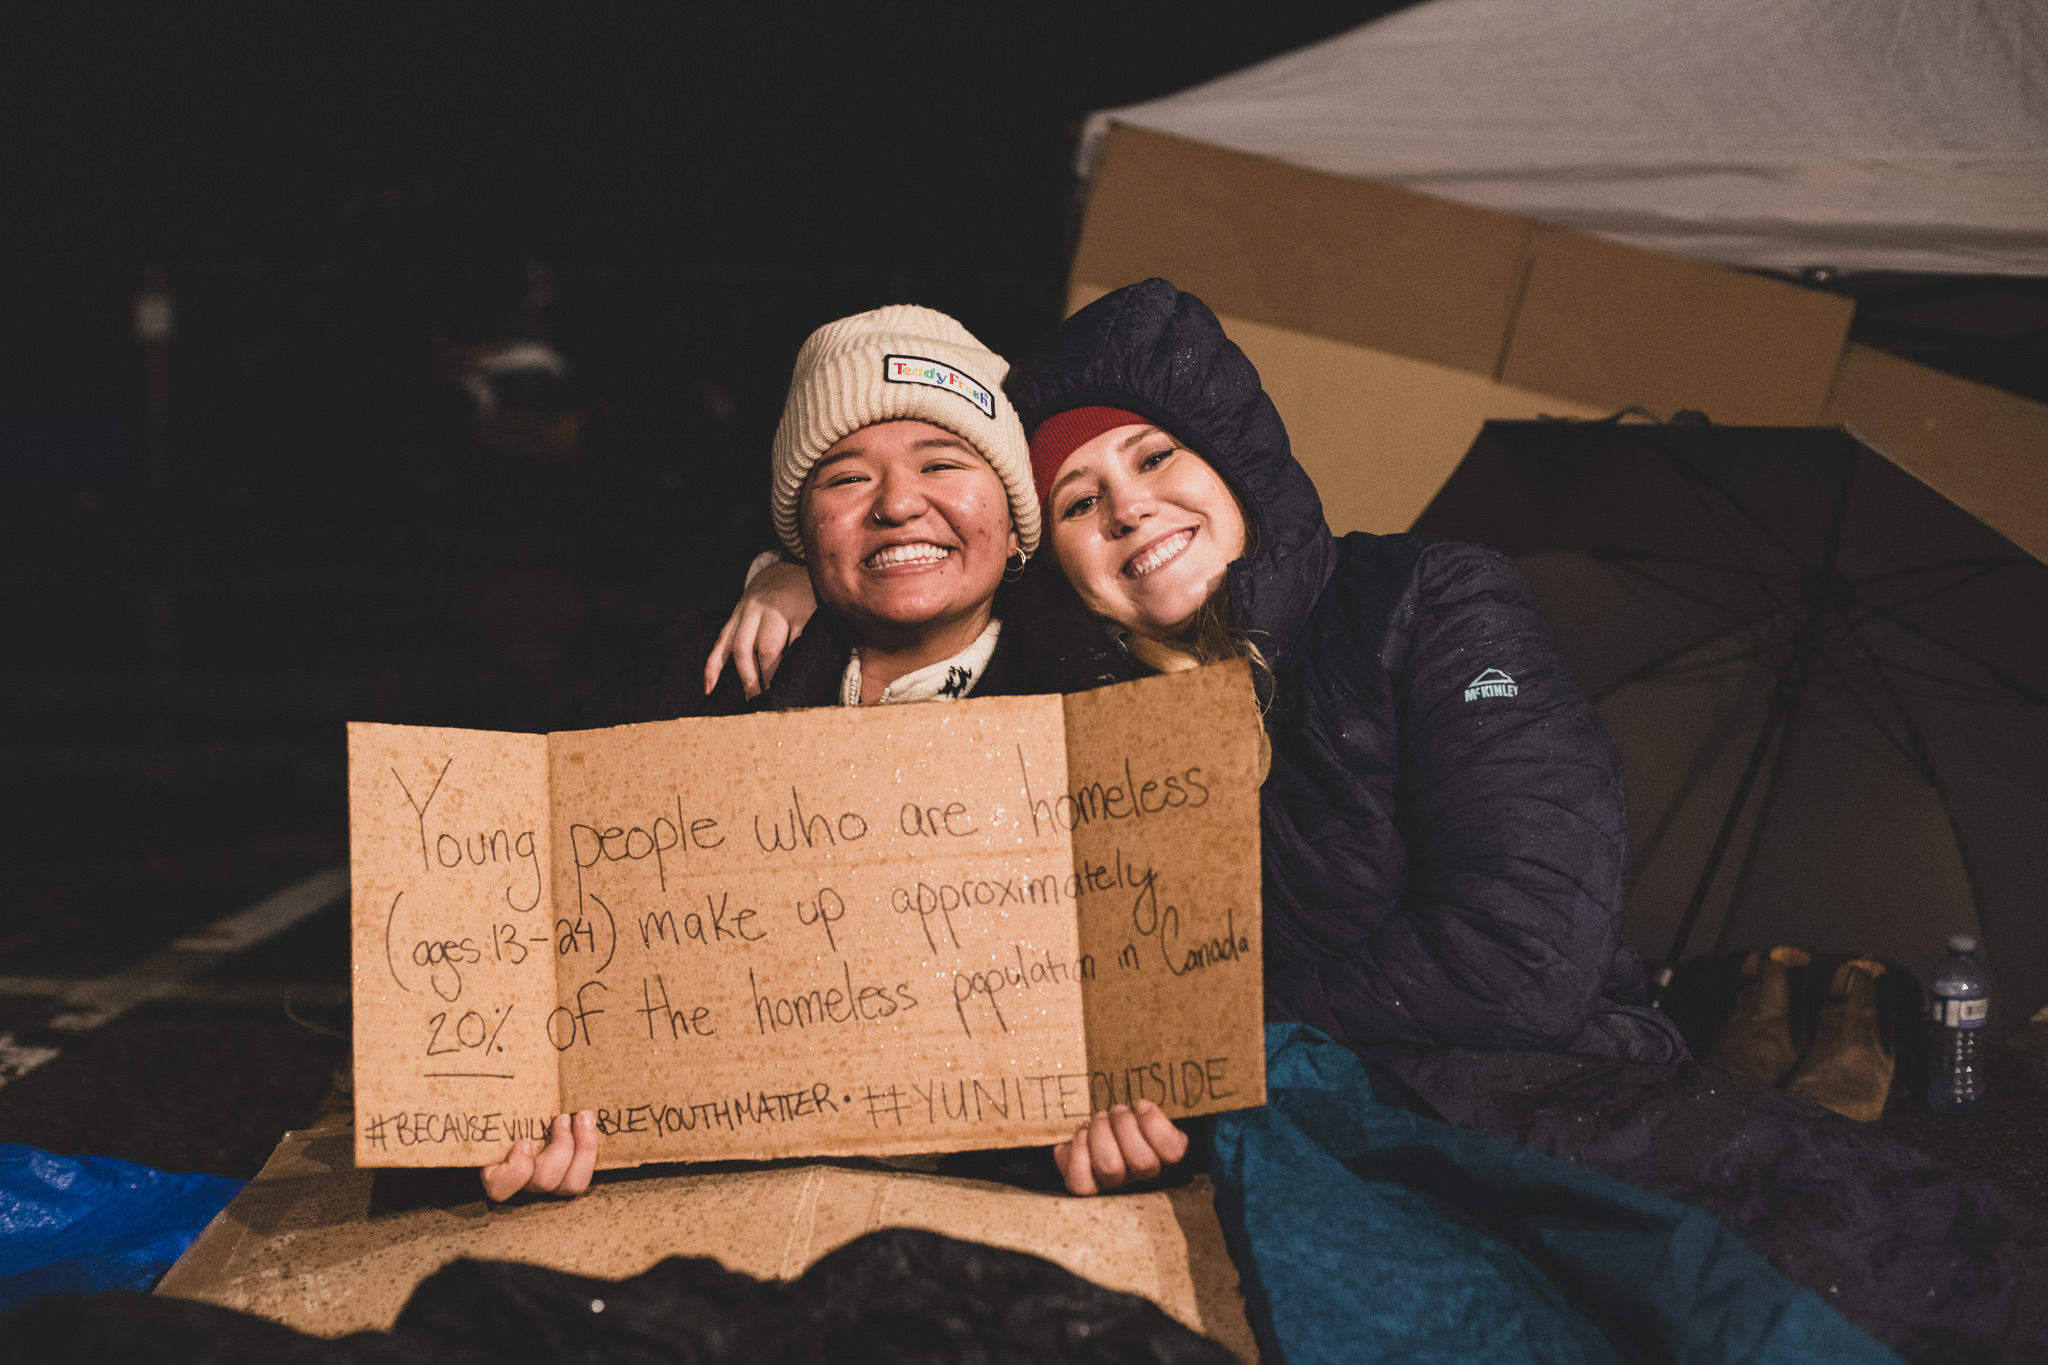 Teddy Fresh
McKINLEY
Young people who are homeless
(ages 13-24) make up approximately
20% of the homeless population in Canada
#BECAUSEVULNERABLEYOUTHMATTER • #YUNITEOUTSIDE